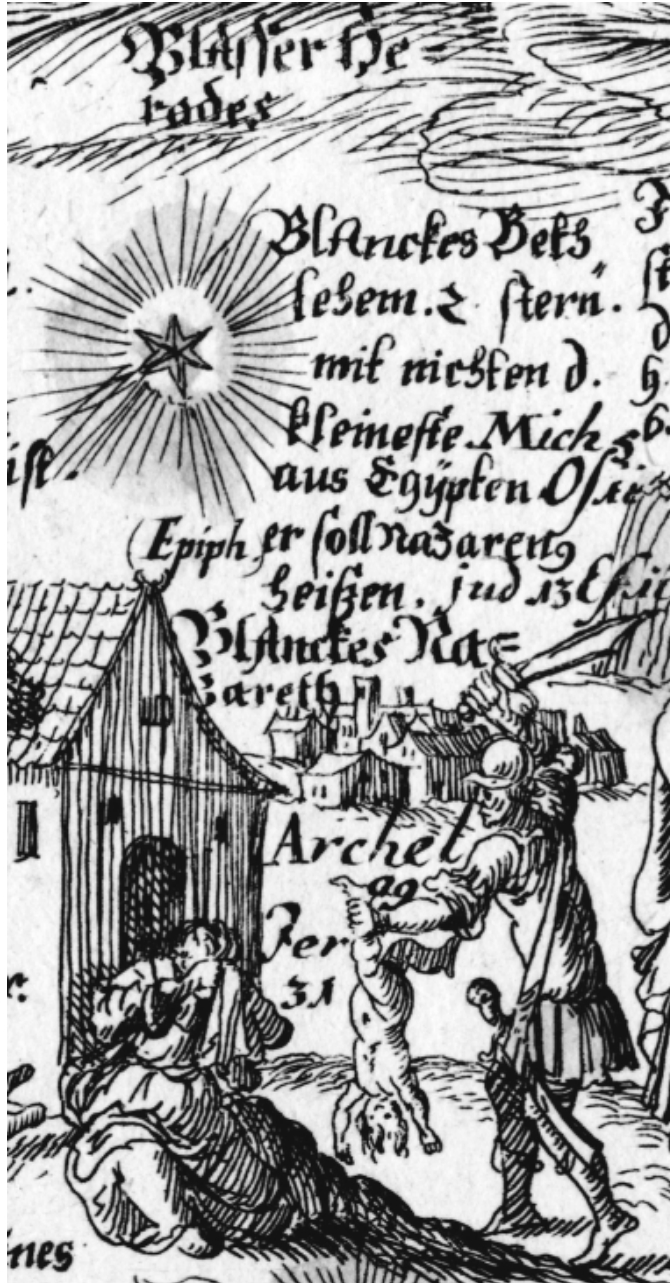 Blasser He
rodes
Blanckes Beth
lehem. 2 stern.
mit nichten d.
kleineste. Mich 5
aus Egÿpten Ose
ist.
Epiph er soll Nazareng
heißen. jud 13 Esa
Blanckes Na=
zareth
Archel
ag
Jer
31
nes